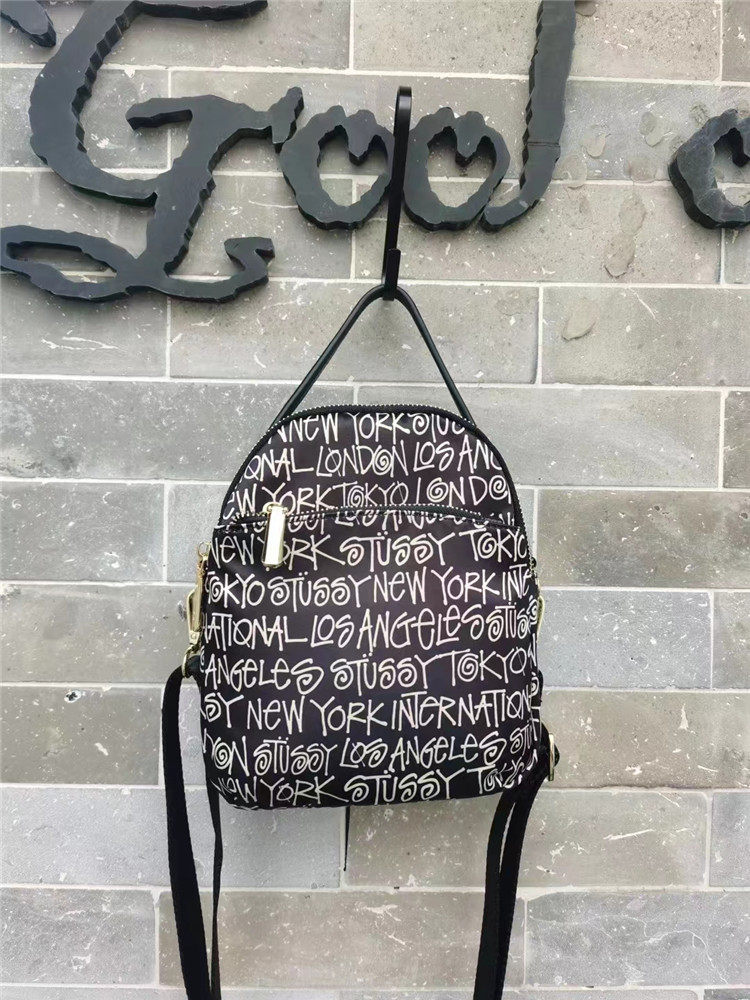 Gool
NEW YORK STÜS
ONAL LONDON LOS AN
EW YORK TOKYO LONDO
LOS ANGELES
NEW YORK STÜSSY TOKYO
TOKYO STÜSSY NEW YORK INTE
NATIONAL LOS ANGELES STÜSS
ANGELES STÜSSY TOKYO N
SY NEW YORK INTERNATION
DON STÜSSY LOS ANGELES STÜ
NEW YORK STÜSSY TOKY